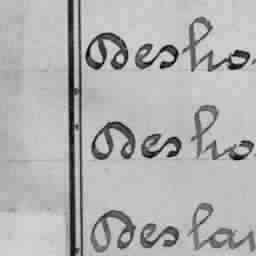 Desho
Desho
Deslau